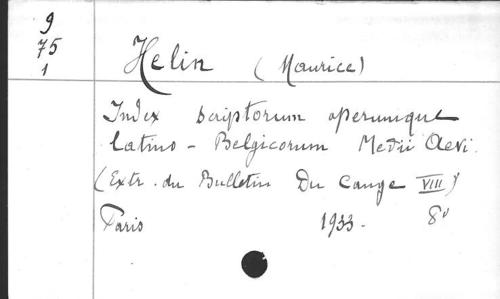 9
75
1
Helin (Maurice)
Index scriptorum operumque
latino - Belgicorum Medii Aevi.
(Extr. du Bulletin Du Cange VIII)
Paris 1933. 8°